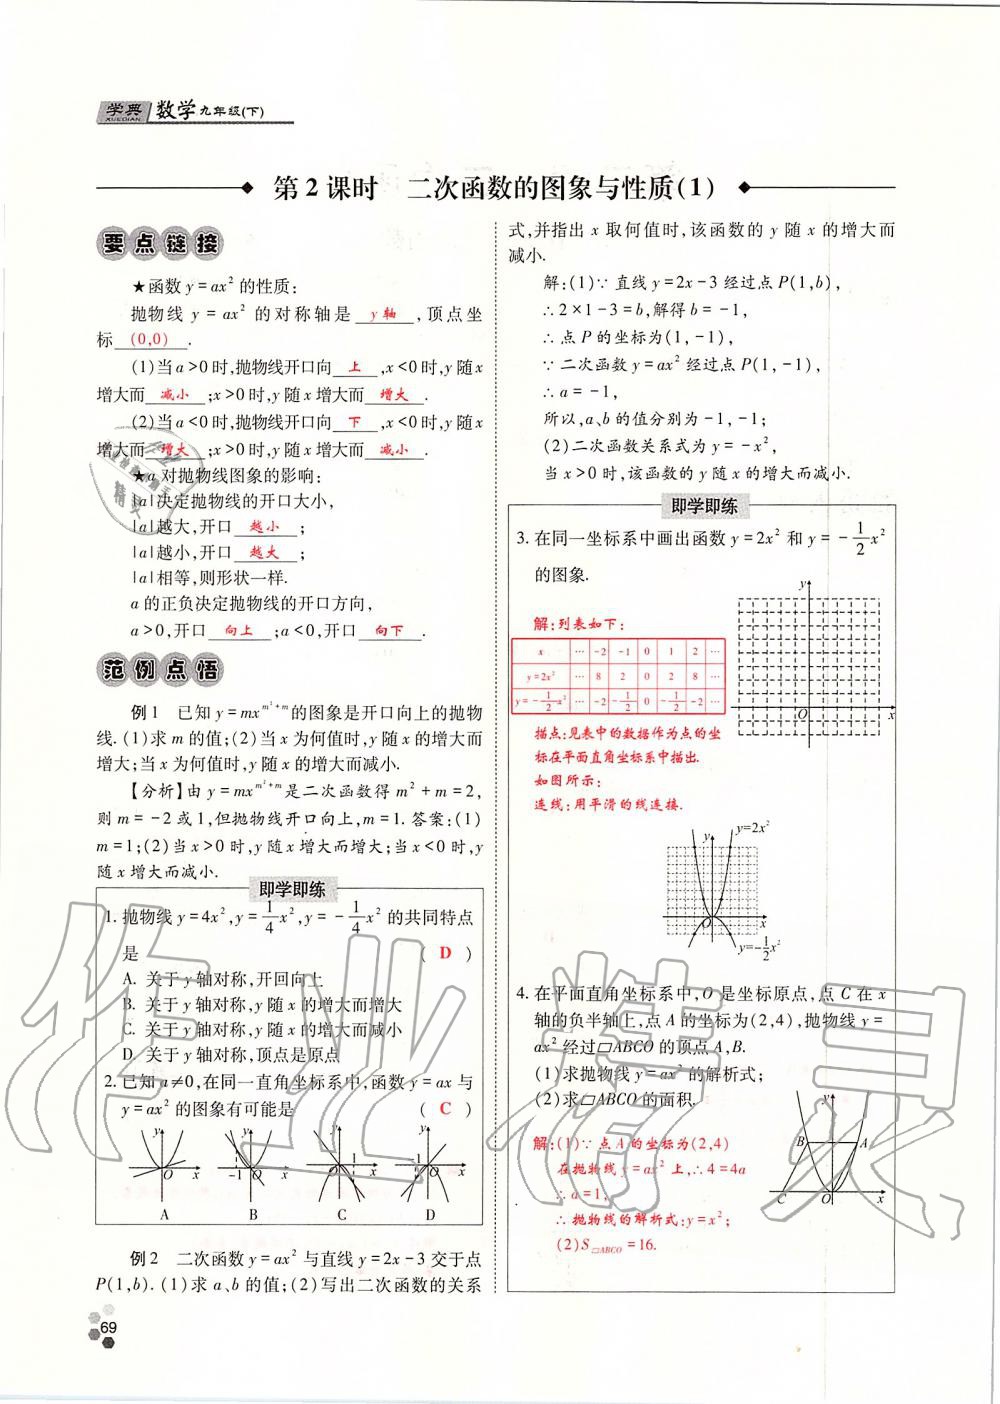 学典 数学九年级(下)
XUEDIAN
第2课时 二次函数的图象与性质(1)
要点链接
★函数y=ax²的性质:
抛物线 y=ax² 的对称轴是 y轴 ,顶点坐
标 (0,0) .
(1)当a>0时,抛物线开口向 上 ,x<0时,y随x
增大而 减小 ;x>0时,y随x增大而 增大 .
(2)当a<0时,抛物线开口向 下 ,x<0时,y随x
增大而 增大 ;x>0时,y随x增大而 减小 .
★a对抛物线图象的影响:
|a|决定抛物线的开口大小,
|a|越大,开口 越小 ;
|a|越小,开口 越大 ;
|a|相等,则形状一样.
a的正负决定抛物线的开口方向,
a>0,开口 向上 ;a<0,开口 向下 .
范例点悟
例1 已知y=mx^{m²+m}的图象是开口向上的抛物
线.(1)求m的值;(2)当x为何值时,y随x的增大而
增大;当x为何值时,y随x的增大而减小.
【分析】由y=mx^{m²+m}是二次函数得m²+m=2,
则m=-2或1,但抛物线开口向上,m=1.答案:(1)
m=1;(2)当x>0时,y随x增大而增大;当x<0时,y
随x增大而减小.
即学即练
1. 抛物线y=4x²,y=1/4x²,y=-1/4x²的共同特点
是 ( D )
A. 关于y轴对称,开回向上
B. 关于y轴对称,y随x的增大而增大
C. 关于y轴对称,y随x的增大而减小
D. 关于y轴对称,顶点是原点
2. 已知a≠0,在同一直角坐标系中,函数y=ax与
y=ax²的图象有可能是 ( C )
y y y y
O x -1 O x O 1 x -1 O x
A B C D
例2 二次函数y=ax²与直线y=2x-3交于点
P(1,b).(1)求a、b的值;(2)写出二次函数的关系
69
式,并指出x取何值时,该函数的y随x的增大而
减小.
解:(1)∵直线y=2x-3经过点P(1,b),
∴2×1-3=b,解得b=-1,
∴点P的坐标为(1,-1),
∵二次函数y=ax²经过点P(1,-1),
∴a=-1,
所以,a、b的值分别为-1,-1;
(2)二次函数关系式为y=-x²,
当x>0时,该函数的y随x的增大而减小.
即学即练
3. 在同一坐标系中画出函数y=2x²和y=-1/2x²
的图象.
解:列表如下:
x … -2 -1 0 1 2 …
y=2x² … 8 2 0 2 8 …
y=-1/2x² … -2 -1/2 0 -1/2 -2 …
y
O x
描点:见表中的数据作为点的坐
标在平面直角坐标系中描出.
如图所示:
连线:用平滑的线连接.
y y=2x²
O x
y=-1/2x²
4. 在平面直角坐标系中,O是坐标原点,点C在x
轴的负半轴上,点A的坐标为(2,4),抛物线y=
ax²经过▱ABCO的顶点A、B.
(1)求抛物线y=ax²的解析式;
(2)求▱ABCO的面积.
y
B A
C O x
解:(1)∵点A的坐标为(2,4)
在抛物线y=ax²上,∴4=4a
∴a=1,
∴抛物线的解析式:y=x²;
(2)S▱ABCO=16.
作业精灵